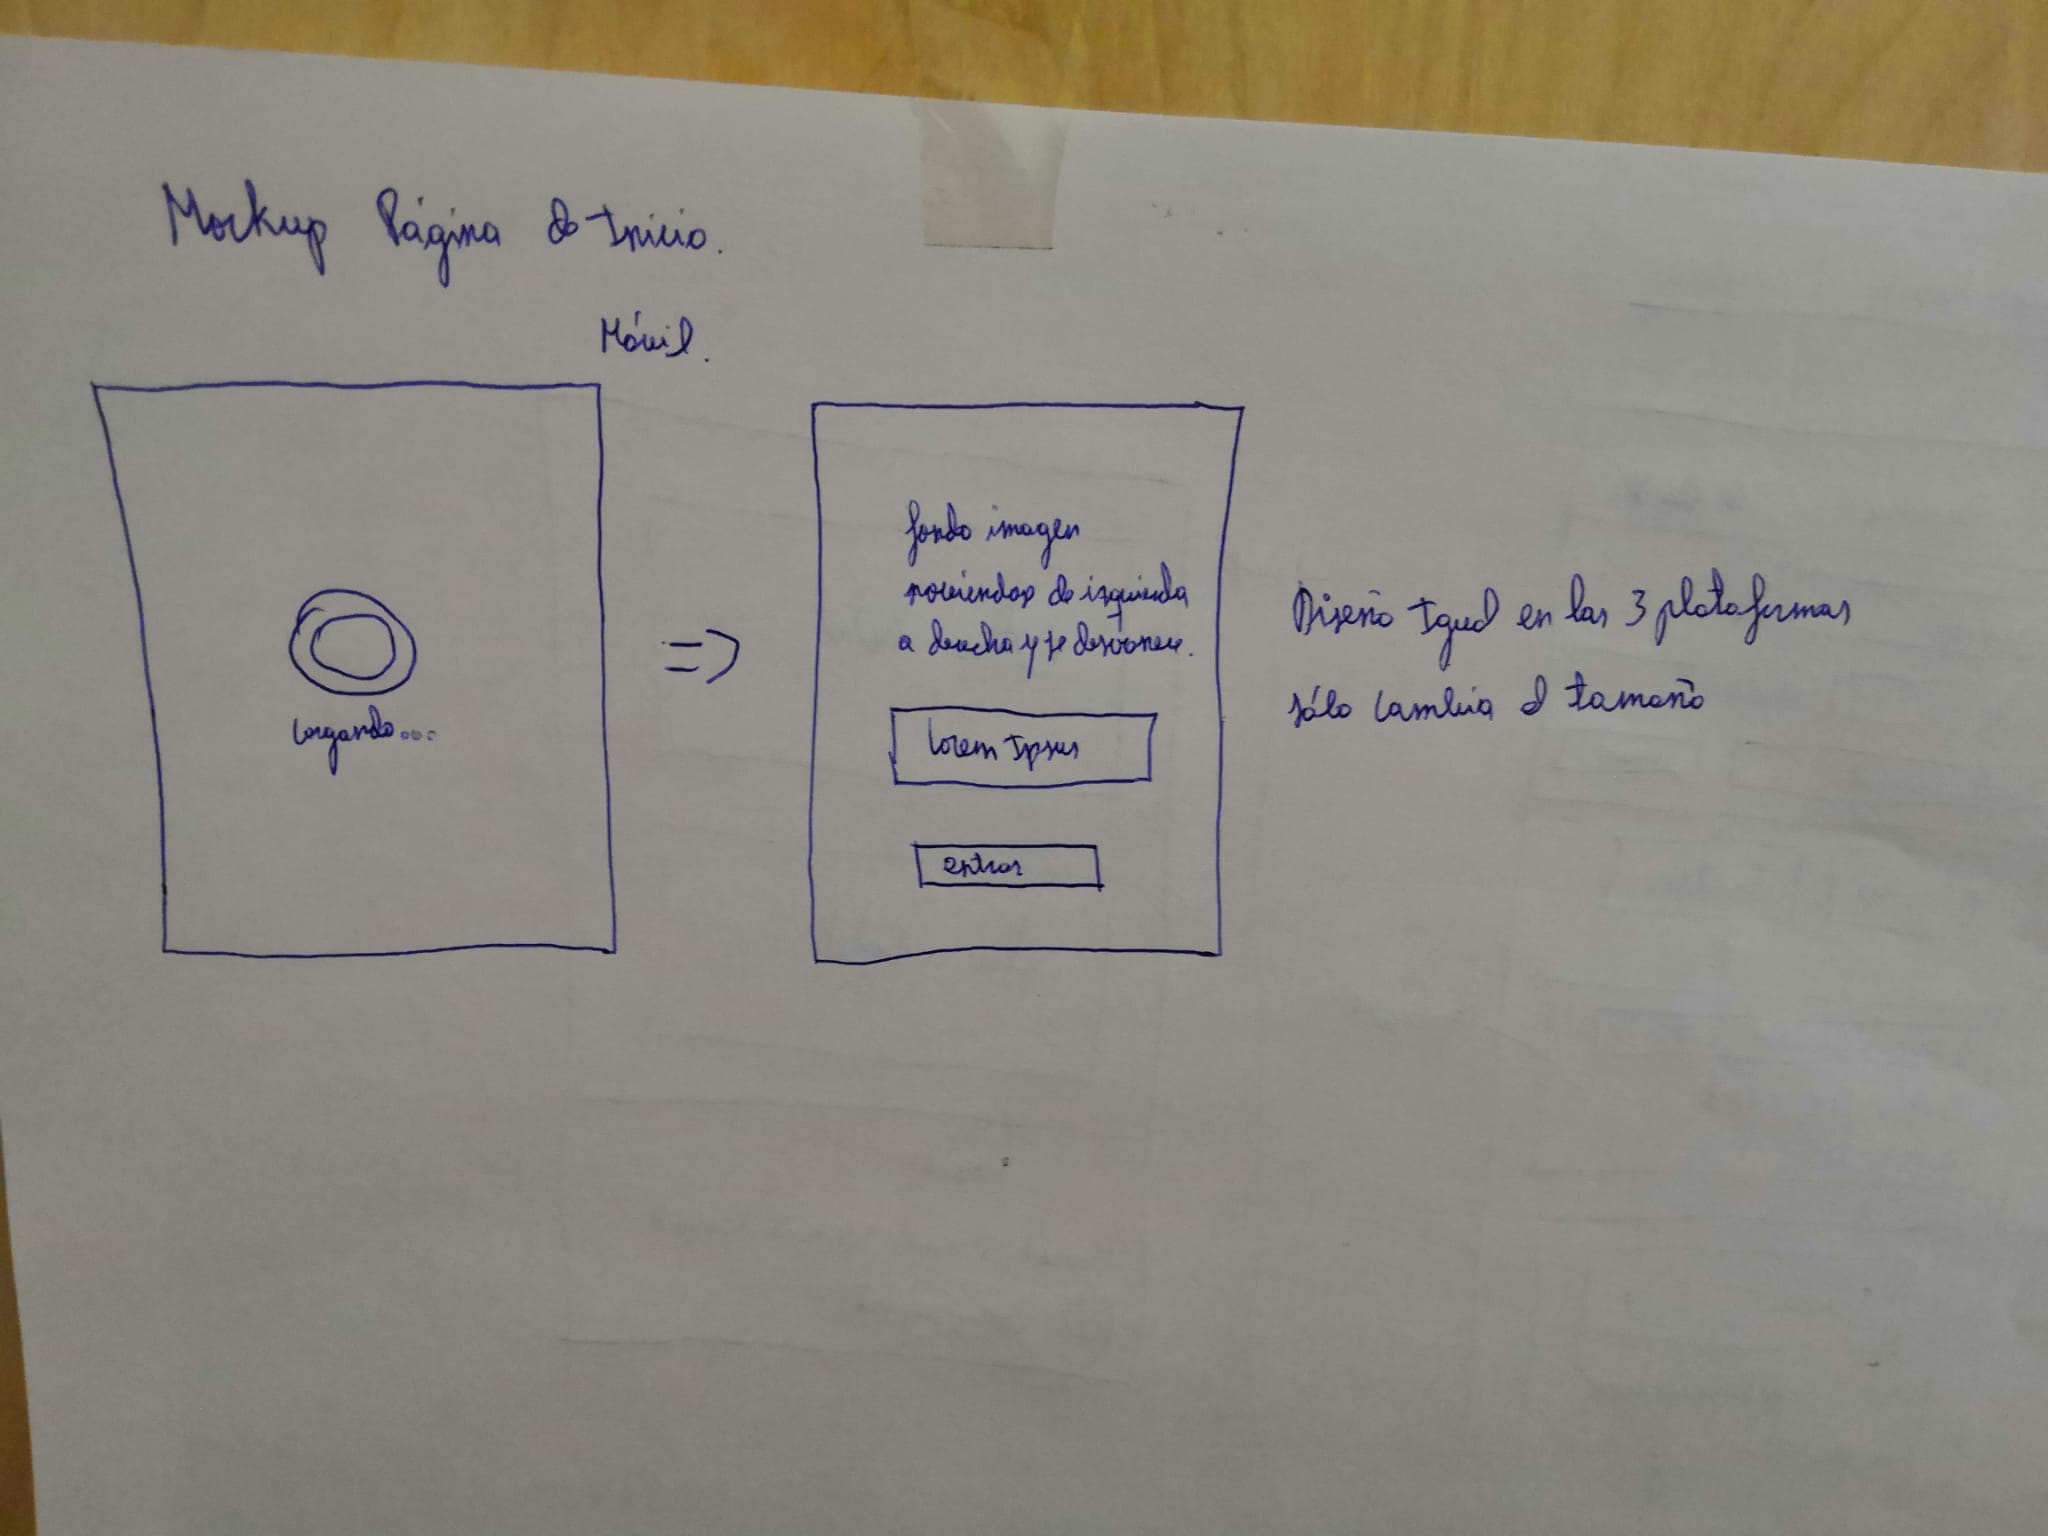 Mockup Página de Inicio.
Móvil.
Cargando...
=>
fondo imagen
moviendose de izquierda
a derecha y se desvanece.
Lorem Ipsus
entrar
Diseño Igual en las 3 plataformas
sólo cambia el tamaño